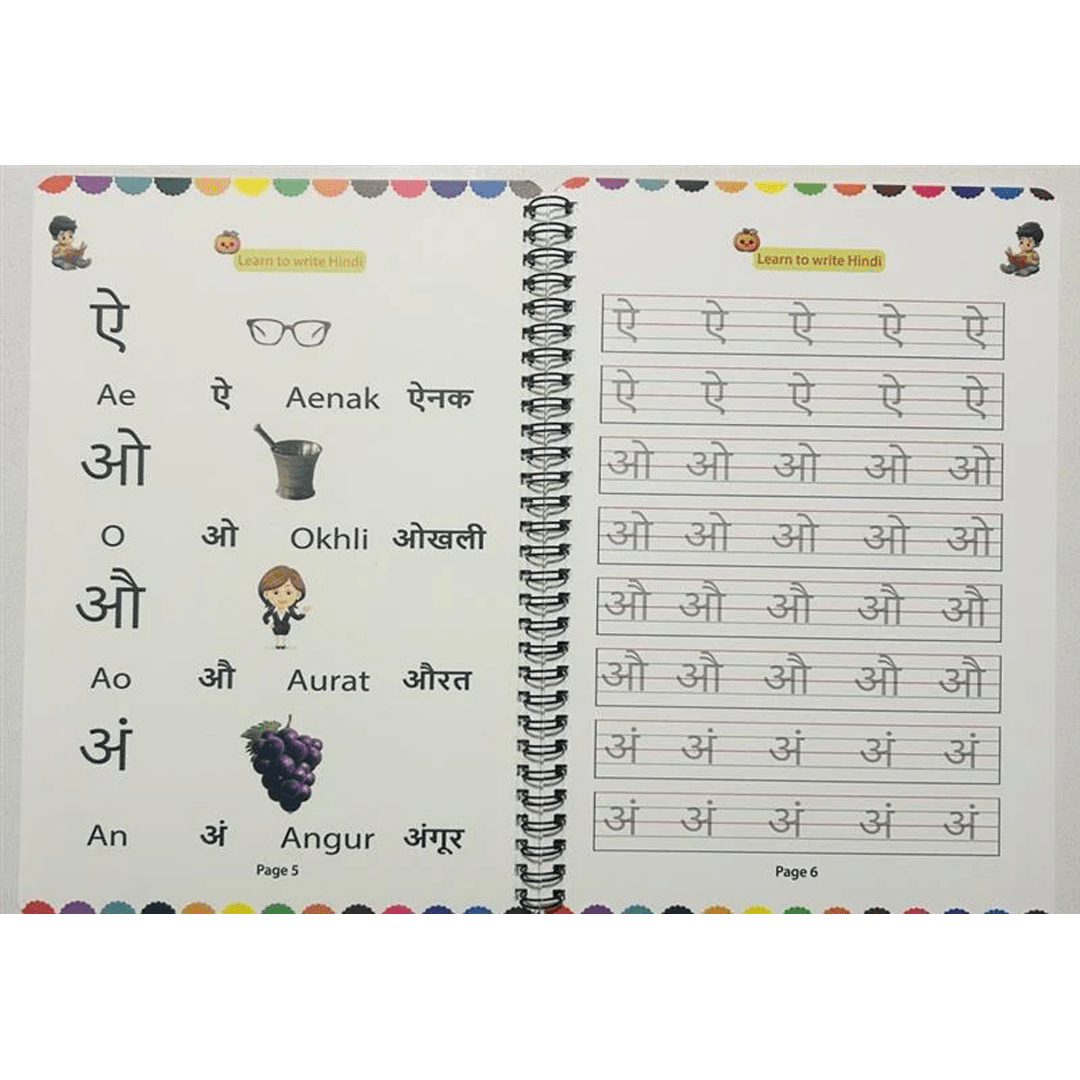 Learn to write Hindi
ऐ
Ae ऐ Aenak ऐनक
ओ
O ओ Okhli ओखली
औ
Ao औ Aurat औरत
अं
An अं Angur अंगूर
Page 5
Learn to write Hindi
ऐ ऐ ऐ ऐ ऐ
ऐ ऐ ऐ ऐ ऐ
ओ ओ ओ ओ ओ
ओ ओ ओ ओ ओ
औ औ औ औ औ
औ औ औ औ औ
अं अं अं अं अं
अं अं अं अं अं
Page 6